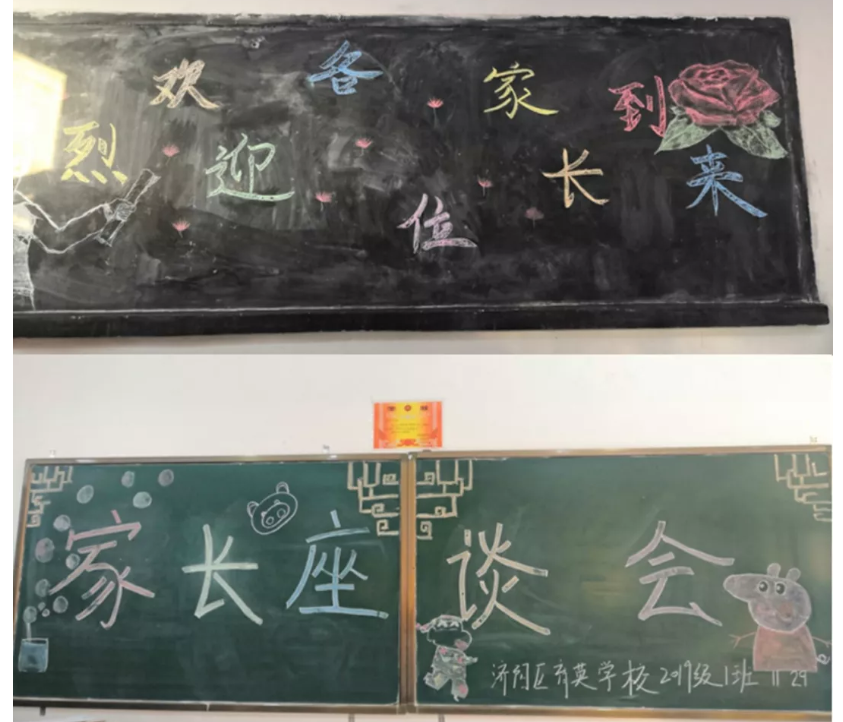 烈欢迎各位家长到来
家长座谈会
济阳区育英学校2019级1班 11 29